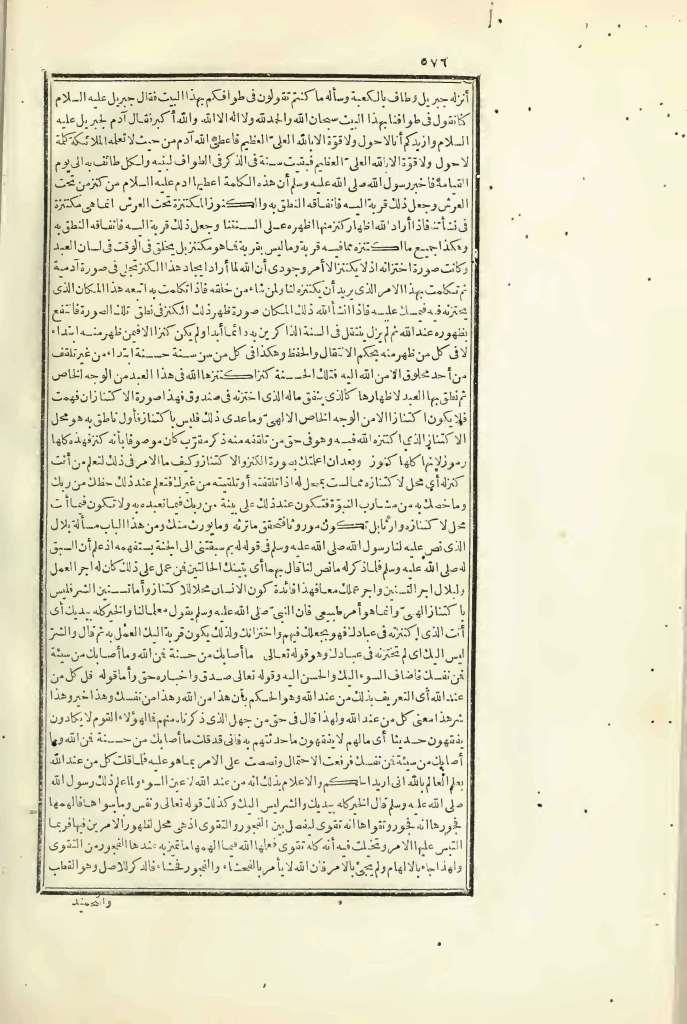 ٥٧٦
أنزله جبريل وطاف بالكعبة وسأله ما كنتم تقولون فى طوافكم بهذا البيت فقال جبريل عليه السلام
كنا نقول فى طوافنا بهذا البيت سبحان الله والحمد لله ولا اله الا الله والله أكبر فقال آدم لجبريل عليه
السلام وازيدكم أنا لا حول ولا قوة الا بالله العلى العظيم فاعطى الله آدم من حيث لا تعلمه الملائكة كلمة
لا حول ولا قوة الا بالله العلى العظيم فبقيت سنة فى الذكر فى الطواف لبنيه ولكل طائف به الى يوم
القيامة فاخبر رسول الله صلى الله عليه وسلم أن هذه الكلمة اعطيها آدم عليه السلام من كنز من تحت
العرش وجعل ذلك قربة اليه فانفاقه النطق به والكنوز المكتنزة تحت العرش انما هى مكتنزة
فى نشأتنا فاذا أراد الله اظهار كنز منها اظهره على ألسنتنا وجعل ذلك قربة اليه فانفاقه النطق به
وهكذا جميع ما اكتنزه مما فيه قربة وما ليس بقربة فما هو مكتنز بل يخلق فى الوقت فى لسان العبد
وكانت صورة اختزانه اذ لا يكتنز الا أمر وجودى أن الله لما أراد ايجاد هذا المكتنز تجلى فى صورة آدمية
ثم تكلمت بهذا الامر الذى يريد أن يكتنزه لنا ولمن شاء من خلقه فاذا تكلمت به اسمعه هذا المكان الذى
يختزنه فيه فيمسك عليه فاذا انشأ الله ذلك المكان صورة ظهر ذلك الكنز فى نطق تلك الصورة فانتفع
بظهوره عند الله ثم لم يزل ينتقل فى السنة الذاكرين به دائما أبدا ولم يكن كنزا الا فيمن ظهر منه ابتداء
لا فى كل من ظهر منه بحكم الانتقال والحفظ وهكذا فى كل من سن سنة حسنة ابتداء من غير تلقف
من أحد مخلوق الا من الله اليه فتلك الحسنة كنز اكتنزها الله فى هذا العبد من الوجه الخاص
ثم نطق بها العبد لاظهارها كالذى ينفق ماله الذى اختزنه فى صندوق فهذا صورة الاكتناز ان فهمت
فلا يكون اكتنازا الا من الوجه الخاص الالهى وما عدى ذلك فليس باكتناز فأول ناطق به هو محل
الاكتناز الذى اكتنزه الله فيه وهو فى حق من تلقفه منه ذكر مقرّب كان موصوفا بأنه كنز فهذه كلها
رموز لانها كلها كنوز وبعد ان اعلمتك بصورة الكنز والاكتناز وكيف ما الامر فى ذلك لتعلم من أنت
كنز له أى محل لاكتنازه مما لست بمحل له اذا تلقفته أو تلقيته من غيرك فتعلم عند ذلك حظك من ربك
وما خصك به من مشارب النبوّة فتكون عند ذلك على بينة من ربك فيما تعبده به ولا تكون فيما أنت
محل لاكتنازه وارثا بل تكون موروثا فتحقق ما ترثه وما يورث منك ومن هذا الباب مسألة بلال
الذى نص عليه لنا رسول الله صلى الله عليه وسلم فى قوله له بم سبقتنى الى الجنة يستفهمه اذ علم أن السبق
له صلى الله عليه وسلم فلما ذكر له ما نص لنا قال بهما أى بتينك الحالتين فمن عمل على ذلك كان له اجر العمل
ولبلال اجر التسنين واجر عملك معا فهذا فائدة كون الانسان محلا للاكتناز وأما تسنين الشر فليس
باكتناز الهى وانما هو أمر طبيعى فان النبى صلى الله عليه وسلم يقول معلما لنا والخير كله بيديك أى
أنت الذى اكتنزته فى عبادك فهو بجعلك فيهم واختزانك ولذلك يكون قربة اليك العمل به ثم قال والشر
ليس اليك اى لم تختزنه فى عبادك وهو قوله تعالى ما أصابك من حسنة فمن الله وما أصابك من سيئة
فمن نفسك فاضاف السوء اليك والحسن اليه وقوله تعالى صدق واخباره حق وأما قوله قل كل من
عند الله أى التعريف بذلك من عند الله وهو الحكم بأن هذا من الله وهذا من نفسك وهذا خير وهذا
شر هذا معنى كل من عند الله ولهذا قال فى حق من جهل الذى ذكرناه منهم فما لهؤلاء القوم لا يكادون
يفقهون حديثا أى ما لهم لا يفقهون ما حدثتهم به فانى قد قلت ما أصابك من حسنة فمن الله وما
أصابك من سيئة فمن نفسك فرفعت الاحتمال ونصصت على الامر بما هو عليه فلما قلت كل من عند الله
يعلم العالم بالله انى اريد الحكم والاعلام بذلك انه من عند الله لا عين السوء ولما علم ذلك رسول الله
صلى الله عليه وسلم قال الخير كله بيديك والشر ليس اليك وكذلك قوله تعالى ونفس وما سواها فالهمها
فجورها انه فجور وتقواها انه تقوى ليفصل بين الفجور والتقوى اذ هى محل لظهور الامرين فيها فربما
التبس عليها الامر وتخيلت فيه أنه كله تقوى فعلمها الله فيما الهمها ما تتميز به عندها الفجور من التقوى
ولهذا جاء بالالهام ولم يجئ بالامر فان الله لا يأمر بالفحشاء والفجور فحشاء فالذكر للاصل وهو القطب
والتحميد